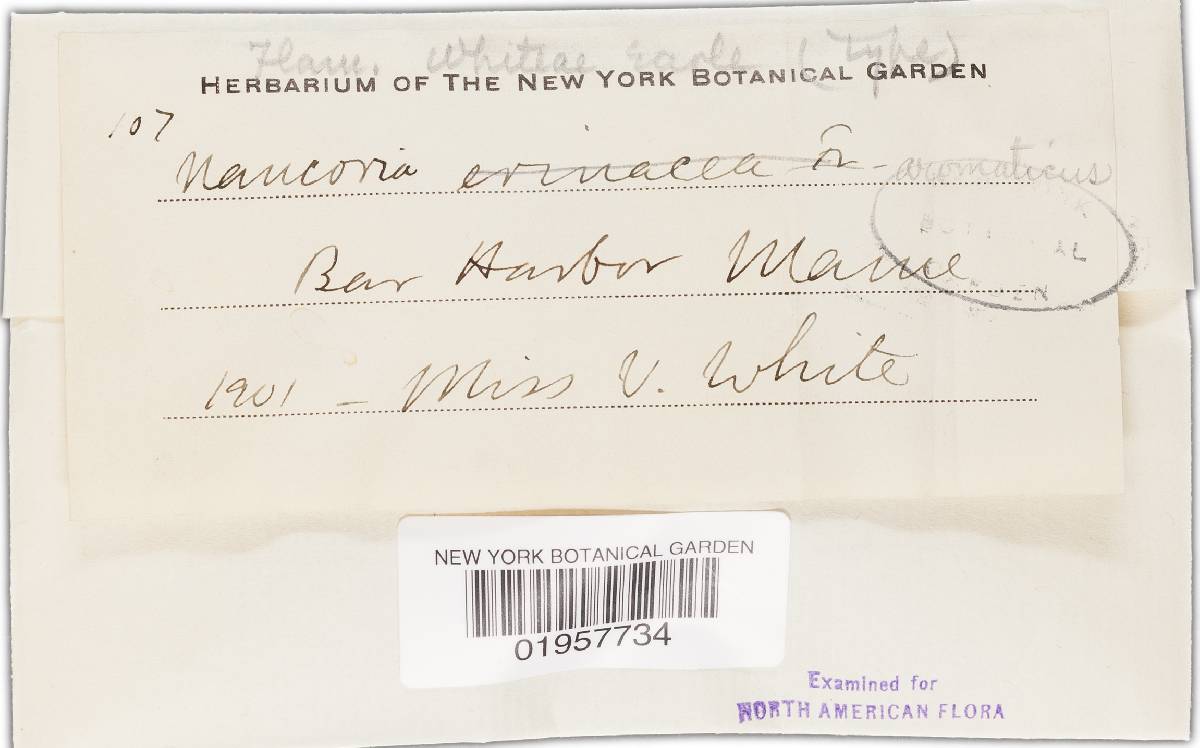 Flam. Whiteae Earle (Type)
HERBARIUM OF THE NEW YORK BOTANICAL GARDEN
107
Naucoria erinacea Fr. aromaticus
Bar Harbor Maine
1901 - Miss V. White
NEW YORK BOTANICAL GARDEN
01957734
Examined for
NORTH AMERICAN FLORA